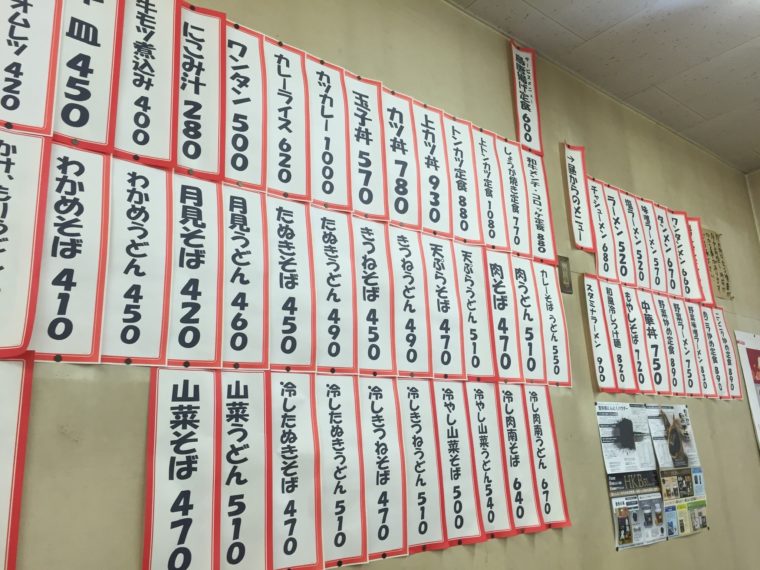 オムレツ 420
皿 450
牛モツ煮込み 400
にこみ汁 280
ワンタン 500
カレーライス 620
カツカレー 1000
玉子丼 570
カツ丼 780
上カツ丼 930
トンカツ定食 880
上トンカツ定食 1080
しょうが焼き定食 770
和牛メンチ・コロッケ定食 880
鳥唐揚げ定食 600
かけ、もりうどん
わかめそば 410
わかめうどん 450
月見そば 420
月見うどん 460
たぬきそば 450
たぬきうどん 490
きつねそば 450
きつねうどん 490
天ぷらそば 470
天ぷらうどん 510
肉そば 470
肉うどん 510
カレーそばうどん 550
山菜そば 470
山菜うどん 510
冷したぬきそば 470
冷したぬきうどん 510
冷しきつねそば 470
冷しきつねうどん 510
冷やし山菜そば 500
冷やし山菜うどん 540
冷し肉南そば 640
冷し肉南うどん 670
→昼からのメニュー
チャシューメン 680
ラーメン 520
塩ラーメン 520
味噌ラーメン 570
タンメン 670
ワンタンメン 660
スタミナラーメン 900
和風冷しつけ麺 820
もやしそば 720
中華丼 750
野菜炒め定食 890
野菜ラーメン 750
野菜味噌ラーメン 830
肉ニラ炒め定食 890
HKB